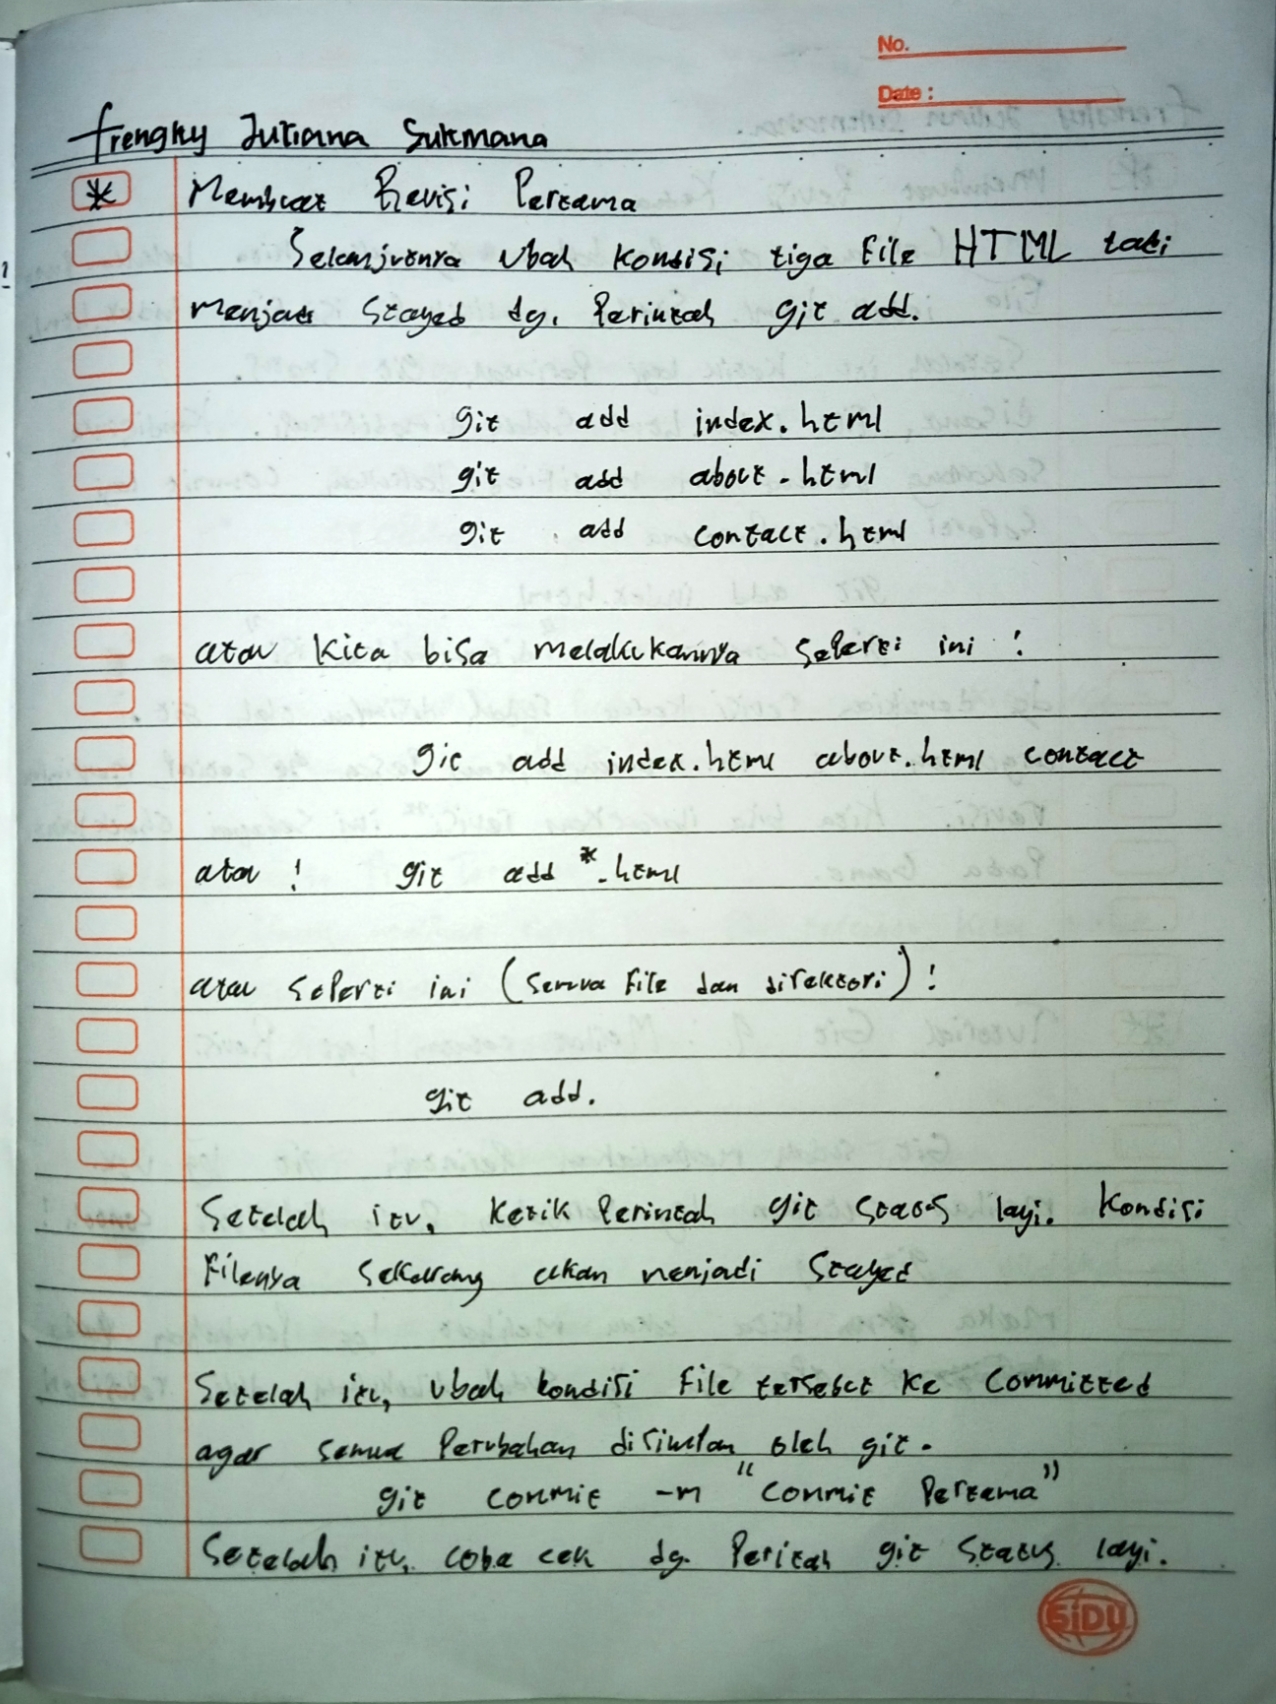 No.
Date :
Frengky Juliana Sukmana
* Membuat Revisi Pertama
Selanjutnya ubah kondisi tiga file HTML tadi
menjadi stayed dg. Perintah git add.
git add index.html
git add about.html
git add contact.html
atau kita bisa melakukannya seperti ini :
git add index.html about.html contact
atau : git add *.html
atau seperti ini (semua file dan direktori) :
git add.
Setelah itu, ketik Perintah git status lagi. Kondisi
filenya sekarang akan menjadi stayed
Setelah itu, ubah kondisi file tersebut ke Committed
agar semua Perubahan disimpan oleh git.
git commit -m "Commit Pertama"
Setelah itu, coba cek dg. Peritah git status lagi.
SiDU